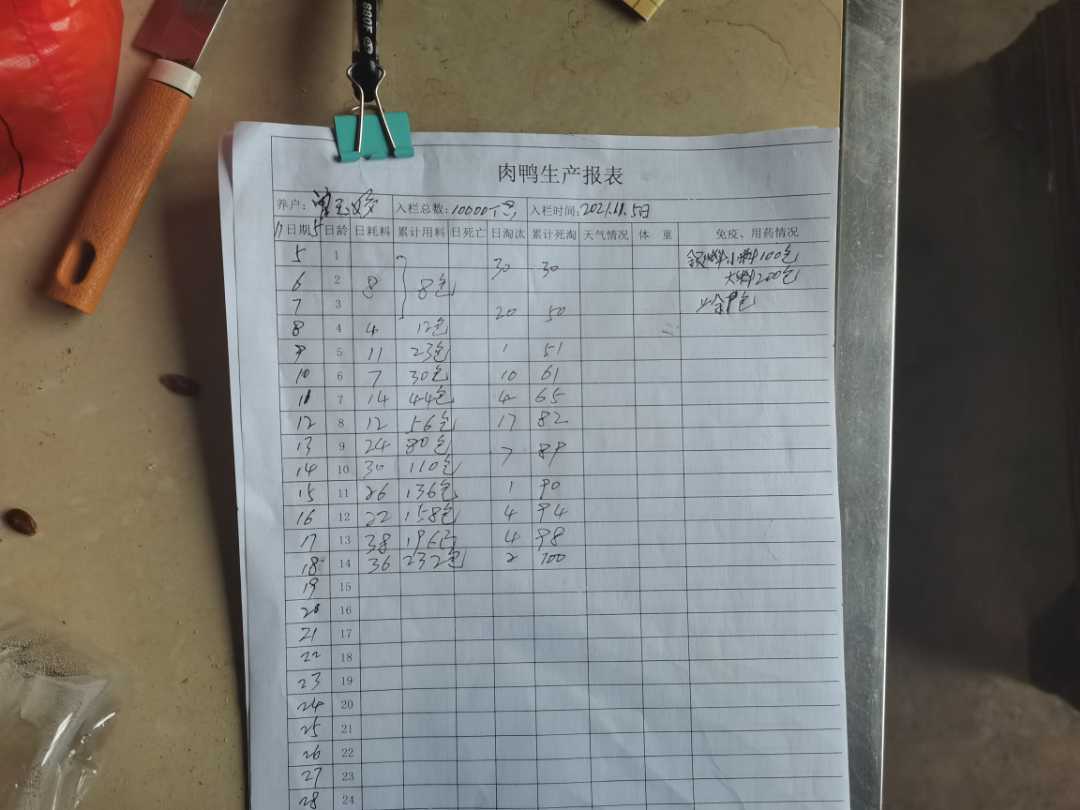 肉鸭生产报表
养户: 入栏总数:10000 入栏时间:2021.11.5日
11日期 日龄 日耗料 累计用料 日死亡 日淘汰 累计死淘 天气情况 体 重 免疫、用药情况
5 1 30 30 小料100包
6 2 8 8包 大料200包
7 3 20 50
8 4 4 12包
9 5 11 23包 1 51
10 6 7 30包 10 61
11 7 14 44包 4 65
12 8 12 56包 17 82
13 9 24 80包 7 89
14 10 30 110包
15 11 26 136包 1 90
16 12 22 158包 4 94
17 13 38 196包 4 98
18 14 36 232包 2 100
19 15
20 16
21 17
22 18
23 19
24 20
25 21
26 22
27 23
28 24